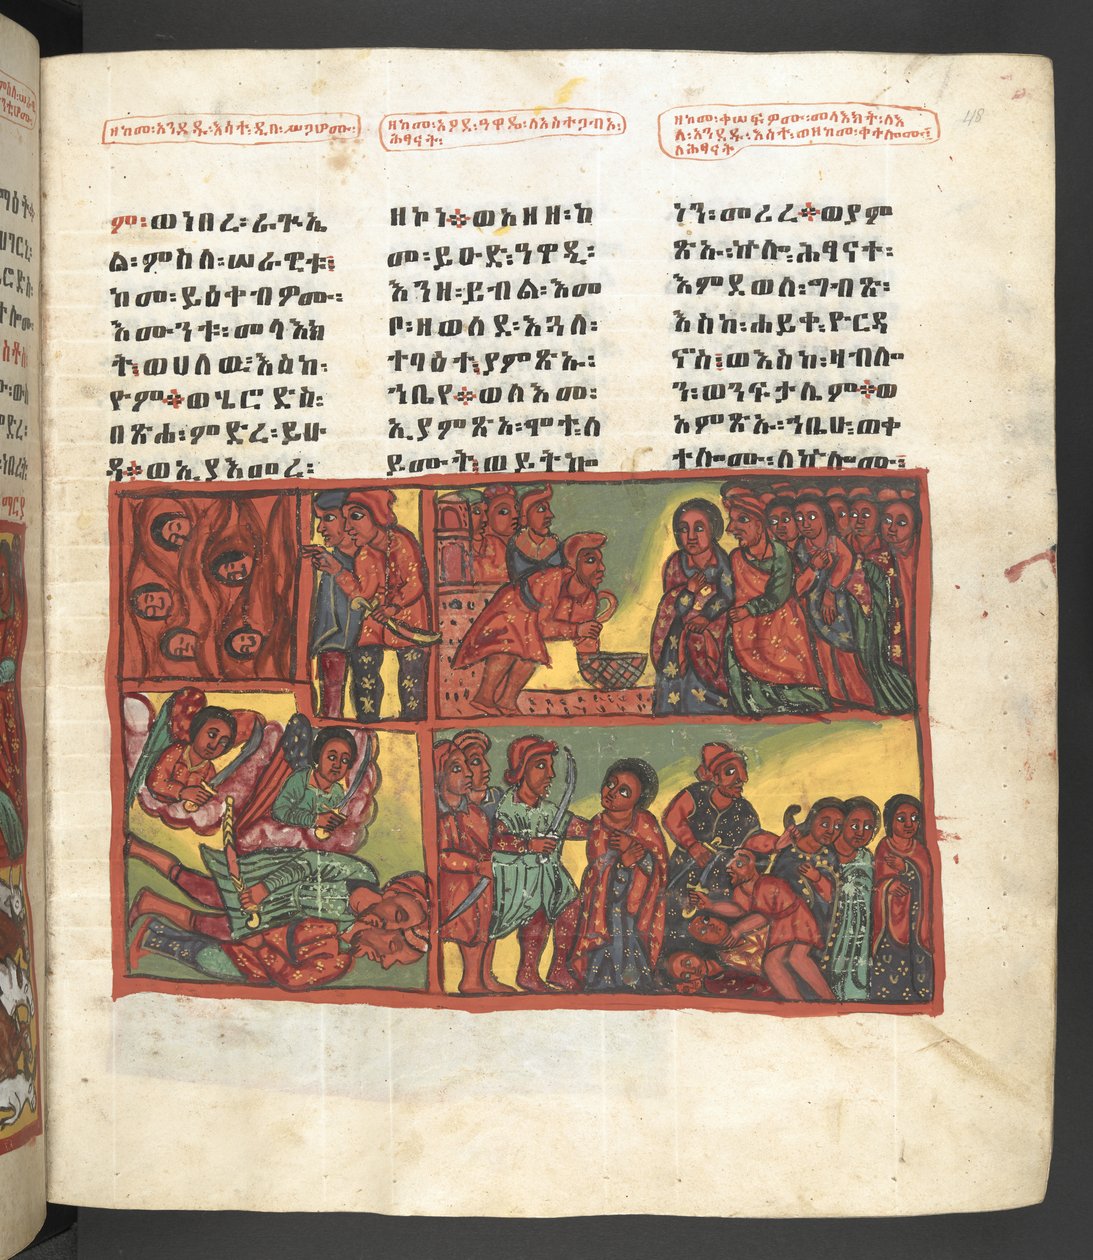 ዘከመ፡አንደዱ፡እሳተ፡ዲበ፡ሥጋሆሙ፡
ዘከመ፡አዖደ፡ዓዋዴ፡ለአስተጋብኦ፡
ሕፃናት፡
ዘከመ፡ቀሠፍዎሙ፡መላእክት፡ለእ
ለ፡አንደዱ፡እሳተ፡ወዘከመ፡ቀተሎሙ፡
ለሕፃናት
48
ም፡ወነበረ፡ራጕኤ
ል፡ምስለ፡ሠራዊቱ፤
ከመ፡ይዕቀብዎሙ፡
እሙንቱ፡መላእክ
ት፤ወሀለዉ፡እስከ፡
ዮም፨ወሄሮድስ፡
በጽሐ፡ምድረ፡ይሁ
ዳ፨ወኢያእመረ፡
ዘኮነ፨ወአዘዘ፡ከ
መ፡ይዑድ፡ዓዋዲ፡
እንዘ፡ይብል፡እመ
ቦ፡ዘወለደ፡እጓለ፡
ተባዕተ፤ያምጽኡ፡
ኀቤየ፨ወለእመ፡
ኢያምጽአ፡ሞተ፡ለ
ይሙት፤ወይትኰ
ነን፡መሪረ፨ወያም
ጽኡ፡ኵሎ፡ሕፃናተ፡
እምደወለ፡ግብጽ፡
እስከ፡ሐይቀ፡ዮርዳ
ኖስ፤ወእስከ፡ዛብሎ
ን፡ወንፍታሌም፨ወ
አምጽኡ፡ኀቤሁ፡ወቀ
ተሎሙ፡ለኵሎሙ፤